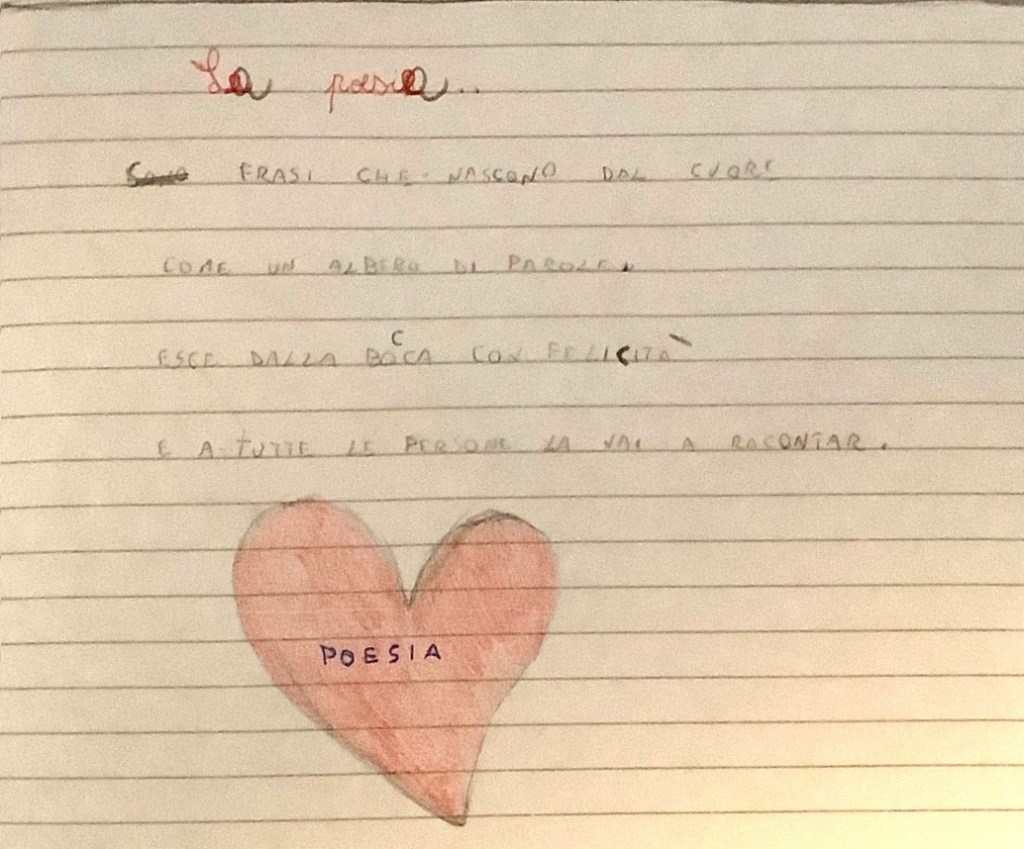 La poesia..
Sono FRASI CHE NASCONO DAL CUORE
COME UN ALBERO DI PAROLE,
ESCE DALLA BOCCA CON FELICITÀ
E A TUTTE LE PERSONE LA VAI A RACONTAR.
POESIA